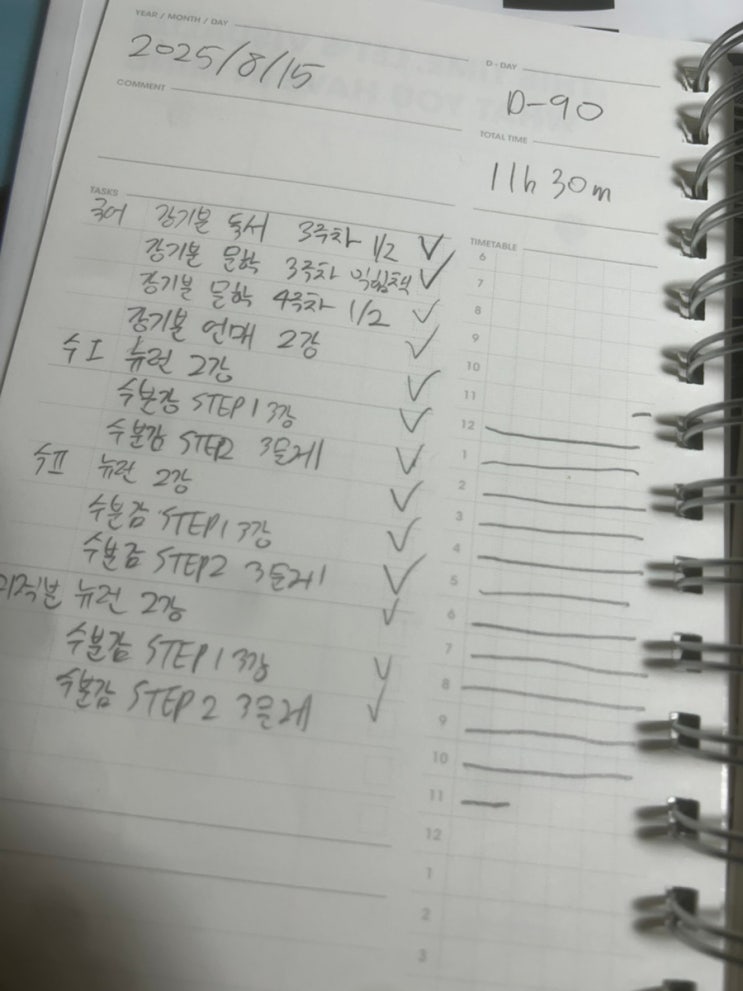 YEAR / MONTH / DAY
2025/8/15
D-DAY
D-90
COMMENT
TOTAL TIME
11h 30m
TASKS
국어 강기본 독서 3주차 1/2
강기본 문학 3주차 익힘책
강기본 문학 4주차 1/2
강기본 언매 2강
수I 뉴런 2강
수분감 STEP1 3강
수분감 STEP2 3문제
수II 뉴런 2강
수분감 STEP1 3강
수분감 STEP2 3문제
미적분 뉴런 2강
수분감 STEP1 3강
수분감 STEP2 3문제
TIMETABLE
6
7
8
9
10
11
12
1
2
3
4
5
6
7
8
9
10
11
12
1
2
3